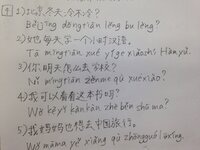 1) 北京冬天冷不冷？
Běijīng dōngtiān lěng bu lěng?
2) 她每天学一个小时汉语。
Tā míngtiān xué yī ge xiǎoshí Hànyǔ.
3) 你明天怎么去学校？
Nǐ míngtiān zěnme qù xuéxiào?
4) 我可以看看这本书吗？
Wǒ kěyǐ kànkàn zhè běn shū ma?
5) 我妈妈也想去中国旅行。
Wǒ māma yě xiǎng qù Zhōngguó lǚxíng.